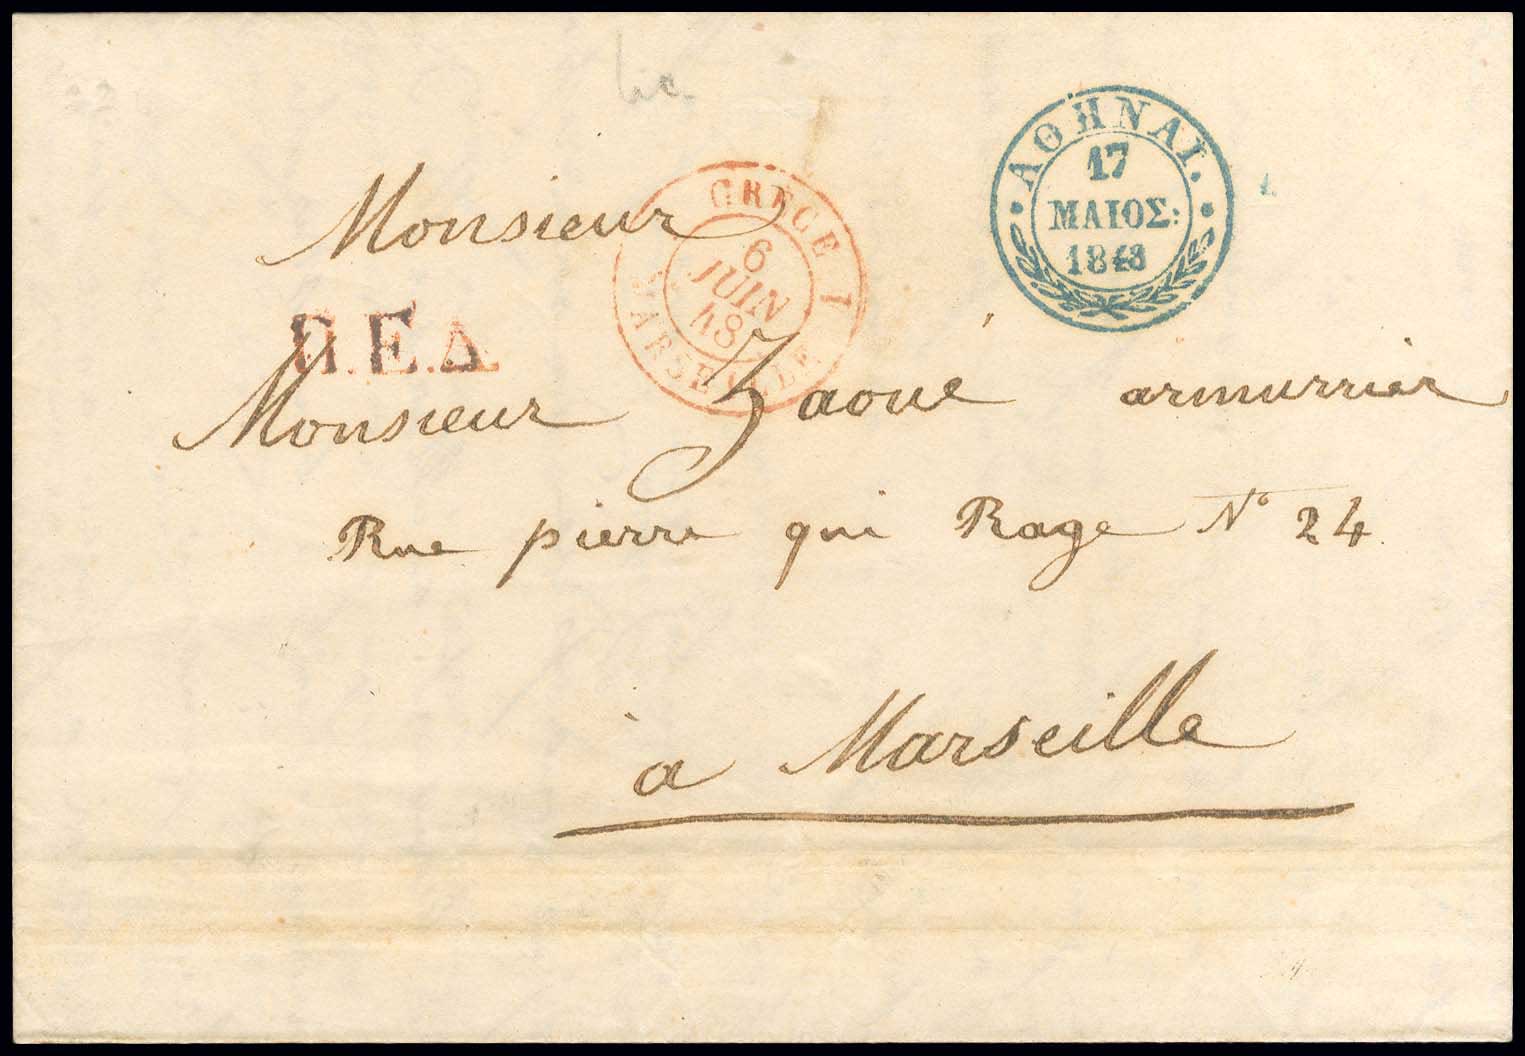 ΑΘΗΝΑΙ.
17
ΜΑΙΟΣ:
1848
GRECE
6
JUIN
48
MARSEILLE
Π.Ε.Δ.
Monsieur
Monsieur Zaoué armurrier
Rue pierre qui Rage N° 24
à Marseille